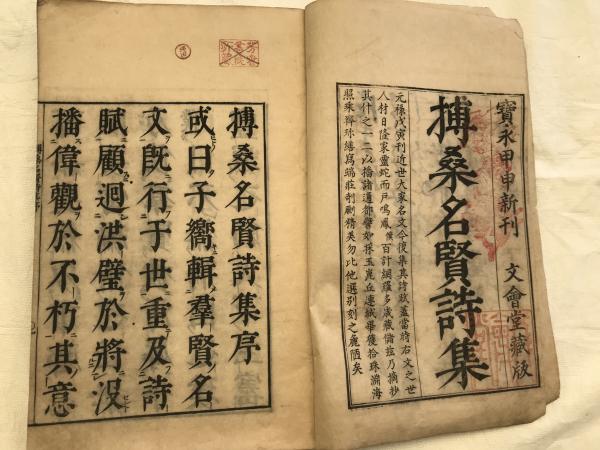 寶永甲申新刊 文會堂藏版
搏桑名賢詩集
元祿戊寅刊近世大家名文今復集其詩蓋當時右文之世
人材日隆家靈蛇而戸鳴鳳百計網羅多歲藏儲玆乃摘抄
其什之一二以播諸遠譬如採玉崑丘連城畢獲拾珠淵海
照乘駢珎繕寫端莊剞劂精美勿比他選別刻之麁陋矣
搏桑名賢詩集序
或曰子嚮輯羣賢名
文既行于世重及詩
賦顧迴洪璧於將沒
播偉觀於不朽其意